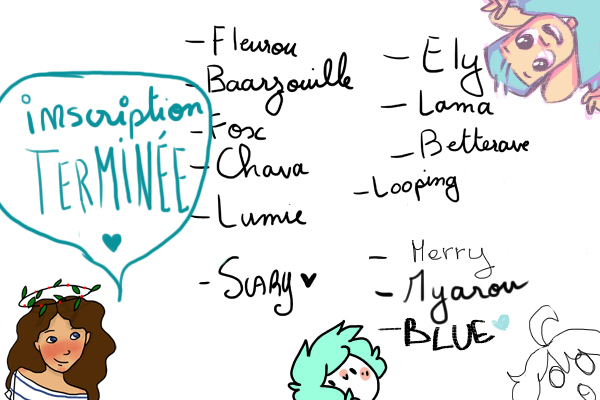 inscription
TERMINÉE
- Fleurou
- Baarzouille
- Fox
- Chava
- Lumie
- SCARY ♥
- Ely
- Lama
- Betterave
- Looping
- Merry
- Myarou
- BLUE ♥